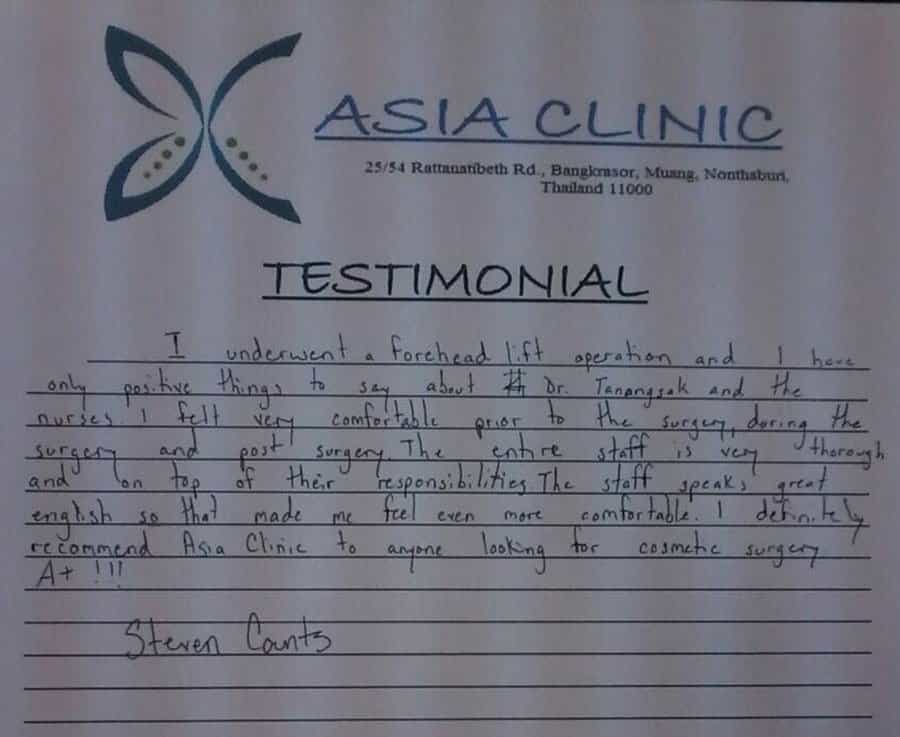 ASIA CLINIC
25/54 Rattanatibeth Rd., Bangkrasor, Muang, Nonthaburi,
Thailand 11000
TESTIMONIAL
I underwent a forehead lift operation and I have
only positive things to say about Dr. Tanongsak and the
nurses. I felt very comfortable prior to the surgery, during the
surgery and post surgery. The entire staff is very thorough
and on top of their responsibilities. The staff speaks great
english so that made me feel even more comfortable. I definitely
recommend Asia Clinic to anyone looking for cosmetic surgery
A+ !!!
Steven Counts